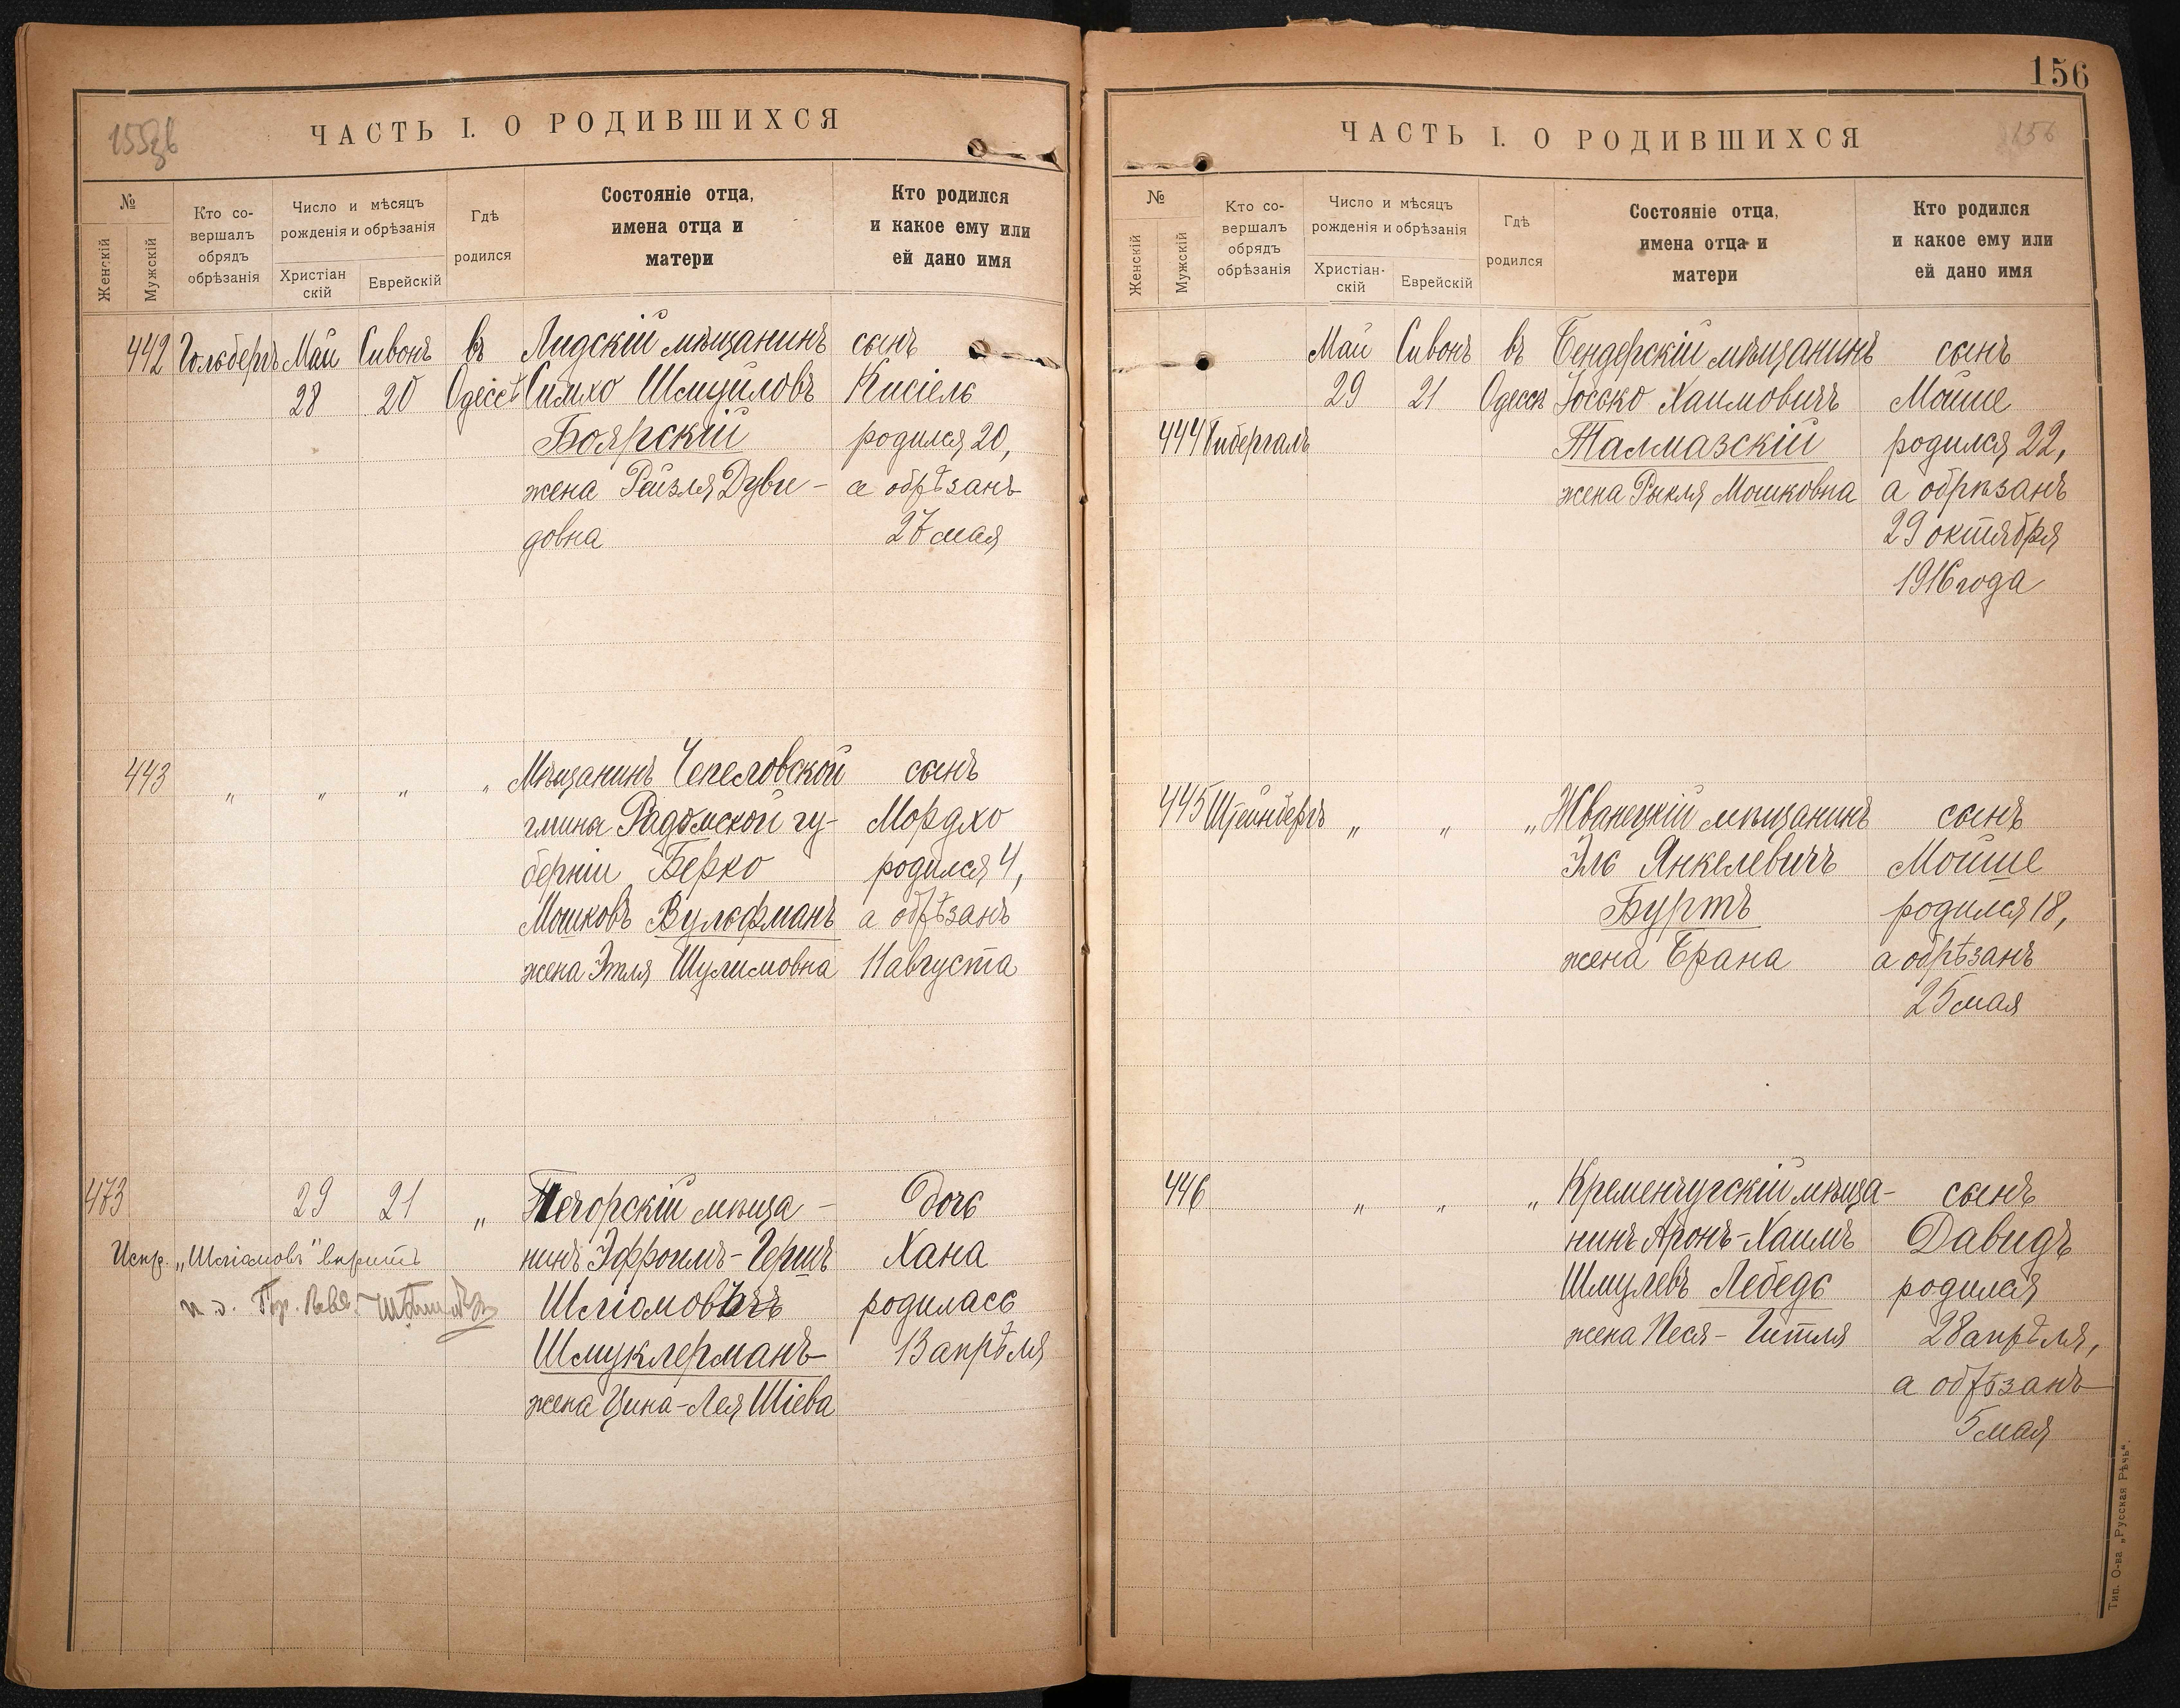 155зв
ЧАСТЬ I. О РОДИВШИХСЯ
№
Женскій
Мужскій
Кто со-
вершалъ
обрядъ
обрѣзанія
Число и мѣсяцъ
рожденія и обрѣзанія
Христіан
скій
Еврейскій
Гдѣ
родился
Состояніе отца,
имена отца и
матери
Кто родился
и какое ему или
ей дано имя
442 Гольбергъ Май Сивонъ въ Лидскій мѣщанинъ сынъ
28 20 Одессѣ Симхо Шмуиловъ Кисіель
Боярскій родился 20,
жена Рейзля Дуви- а обрѣзанъ
довна 27 мая
443 „ „ „ „ Мѣщанинъ Чепеловской сынъ
гмины Радомской гу- Мордхо
берніи Берко родился 4,
Мошковъ Вульфманъ а обрѣзанъ
жена Этля Шулимовна 11 августа
473 29 21 „ Печорскій мѣща- дочь
Испр. „Шліомовъ" вѣрить нинъ Эфроимъ-Гершъ Хана
Шліомовъ родилась
Шмуклерманъ 13 апрѣля
жена Цина-Лея Шіева
156
156
ЧАСТЬ I. О РОДИВШИХСЯ
№
Женскій
Мужскій
Кто со-
вершалъ
обрядъ
обрѣзанія
Число и мѣсяцъ
рожденія и обрѣзанія
Христіан-
скій
Еврейскій
Гдѣ
родился
Состояніе отца,
имена отца и
матери
Кто родился
и какое ему или
ей дано имя
Май Сивонъ въ Бендерскій мѣщанинъ сынъ
29 21 Одессѣ Іосько Хаимовичъ Мойше
444 Гибергаль Талмазскій родился 22,
жена Рыкля Мошковна а обрѣзанъ
29 октября
1916 года
445 Штейнбергъ „ „ „ Жванецкій мѣщанинъ сынъ
Эль Янкелевичъ Мойше
Буртъ родился 18,
жена Брана а обрѣзанъ
25 мая
446 „ „ „ Кременчугскій мѣща- сынъ
нинъ Аронъ-Хаимъ Давидъ
Шмулевъ Лебедь родился
жена Песя-Гитля 28 апрѣля,
а обрѣзанъ
5 мая
Тип. О-ва „Русская Рѣчь".